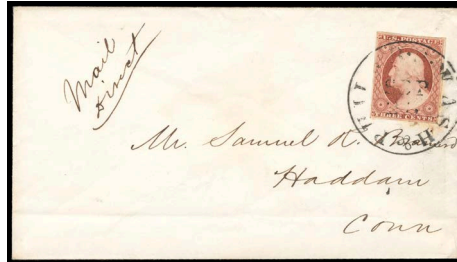 Mail
Direct
U.S. POSTAGE
THREE CENTS
WASH. & PHIL
Mr. Samuel R.
Haddam
Conn